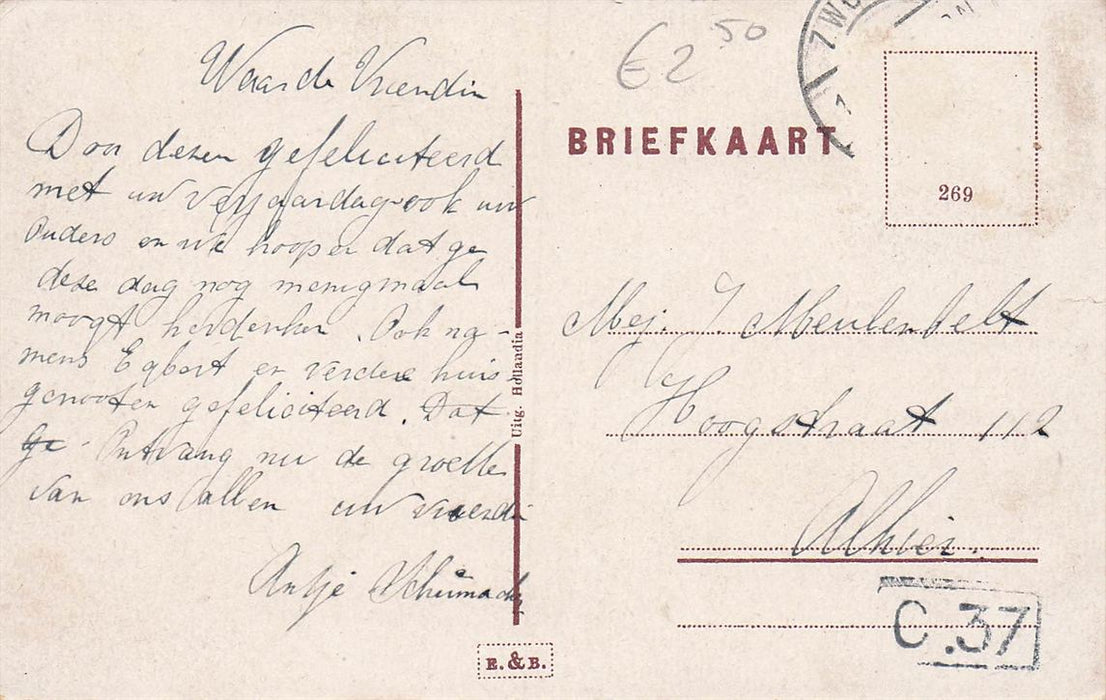 Waarde Vriendin
Door dezen gefeliciteerd
met uw verjaardag ook uw
Ouders en we hopen dat ge
deze dag nog menigmaal
moogt herdenken. Ook na-
mens Egbert en verdere huis
genooten gefeliciteerd. Dat
ge. Ontvang nu de groetten
van ons allen uw vriendin
Antje Schumach
€ 2 50
ZWO
BRIEFKAART
269
Mej. J. Meulenbelt
Hoogstraat 112
Alhier.
C.37
Uitg. Hollandia
E. & B.